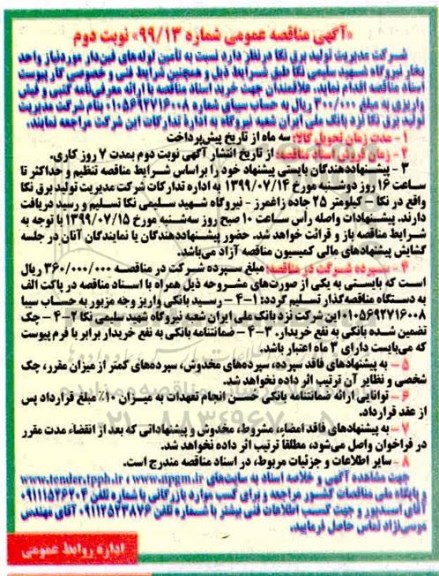 «آگهی مناقصه عمومی شماره ۹۹/۱۳» نوبت دوم
شرکت مدیریت تولید برق نکا درنظر دارد نسبت به تأمین لوله‌های فین‌دار موردنیاز واحد
بخار نیروگاه شهید سلیمی نکا طبق شرایط ذیل و همچنین شرایط فنی و خصوصی کار پیوست
اسناد مناقصه اقدام نماید. علاقمندان جهت خرید اسناد مناقصه با ارائه معرفی‌نامه کتبی و فیش
واریزی به مبلغ ۳۰۰/۰۰۰ ریال به حساب سیبای شماره ۰۱۰۵۶۹۲۷۱۶۰۰۸ بنام شرکت مدیریت
تولید برق نکا نزد بانک ملی ایران شعبه نیروگاه به اداره تدارکات این شرکت مراجعه نمایند.
۱- مدت زمان تحویل کالا: سه ماه از تاریخ پیش‌پرداخت
۲- زمان فروش اسناد مناقصه: از تاریخ انتشار آگهی نوبت دوم بمدت ۷ روز کاری.
۳ - پیشنهاددهندگان بایستی پیشنهاد خود را براساس شرایط مناقصه تنظیم و حداکثر تا
ساعت ۱۶ روز دوشنبه مورخ ۱۳۹۹/۰۷/۱۴ به اداره تدارکات شرکت مدیریت تولید برق نکا
واقع در نکا - کیلومتر ۲۵ جاده زاغمرز - نیروگاه شهید سلیمی نکا تسلیم و رسید دریافت
دارند. پیشنهادات واصله رأس ساعت ۱۰ صبح روز سه‌شنبه مورخ ۱۳۹۹/۰۷/۱۵ با توجه به
شرایط مناقصه باز و قرائت خواهد شد. حضور پیشنهاددهندگان یا نمایندگان آنان در جلسه
گشایش پیشنهادهای مالی کمیسیون مناقصه آزاد می‌باشد.
۴ - سپرده شرکت در مناقصه: مبلغ سپرده شرکت در مناقصه ۳۶۰/۰۰۰/۰۰۰ ریال
است که بایستی به یکی از صورت‌های مشروحه ذیل همراه با اسناد مناقصه در پاکت الف
به دستگاه مناقصه‌گذار تسلیم گردد: ۱-۴ - رسید بانکی واریز وجه مزبور به حساب سیبا
۰۱۰۵۶۹۲۷۱۶۰۰۸ این شرکت نزد بانک ملی ایران شعبه نیروگاه شهید سلیمی نکا ۲-۴ - چک
تضمین شده بانکی به نفع خریدار. ۳-۴ - ضمانتنامه بانکی به نفع خریدار برابر با فرم پیوست
که می‌بایست دارای ۳ ماه اعتبار باشد.
۵ - به پیشنهادهای فاقد سپرده، سپرده‌های مخدوش، سپرده‌های کمتر از میزان مقرر، چک
شخصی و نظایر آن ترتیب اثر داده نخواهد شد.
۶ - توانایی ارائه ضمانتنامه بانکی حسن انجام تعهدات به میزان ۱۰٪ مبلغ قرارداد پس
از عقد قرارداد.
۷- به پیشنهادهای فاقد امضاء، مشروط، مخدوش و پیشنهاداتی که بعد از انقضاء مدت مقرر
در فراخوان واصل می‌شود، مطلقا ترتیب اثر داده نخواهد شد.
۸ - سایر اطلاعات و جزئیات مربوط، در اسناد مناقصه مندرج است.
جهت مشاهده آگهی و خلاصه اسناد به سایت‌های www.npgm.ir ؛ www.tender.tpph.ir
و پایگاه ملی مناقصات کشور مراجعه و برای کسب موارد بازرگانی با شماره تلفن ۰۹۱۱۱۵۲۶۳۰۴
آقای اسدپور و جهت کسب اطلاعات فنی بیشتر با شماره تلفن ۰۹۱۱۲۵۲۳۸۷۶ آقای مهندس
موسی‌نژاد تماس حاصل فرمایید.
اداره روابط عمومی